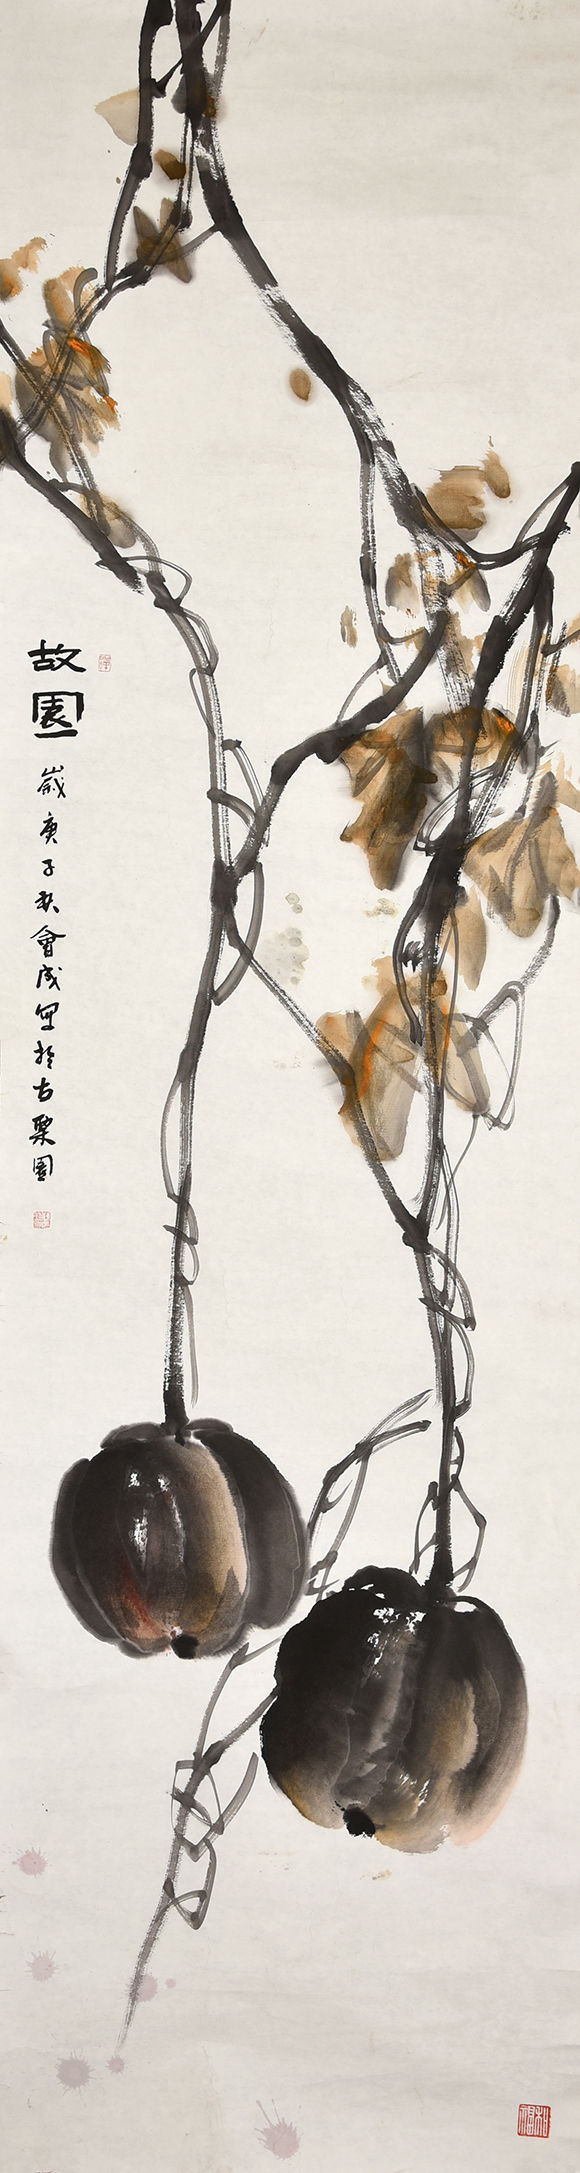 故園
歲庚子秋會成寫於古栗園